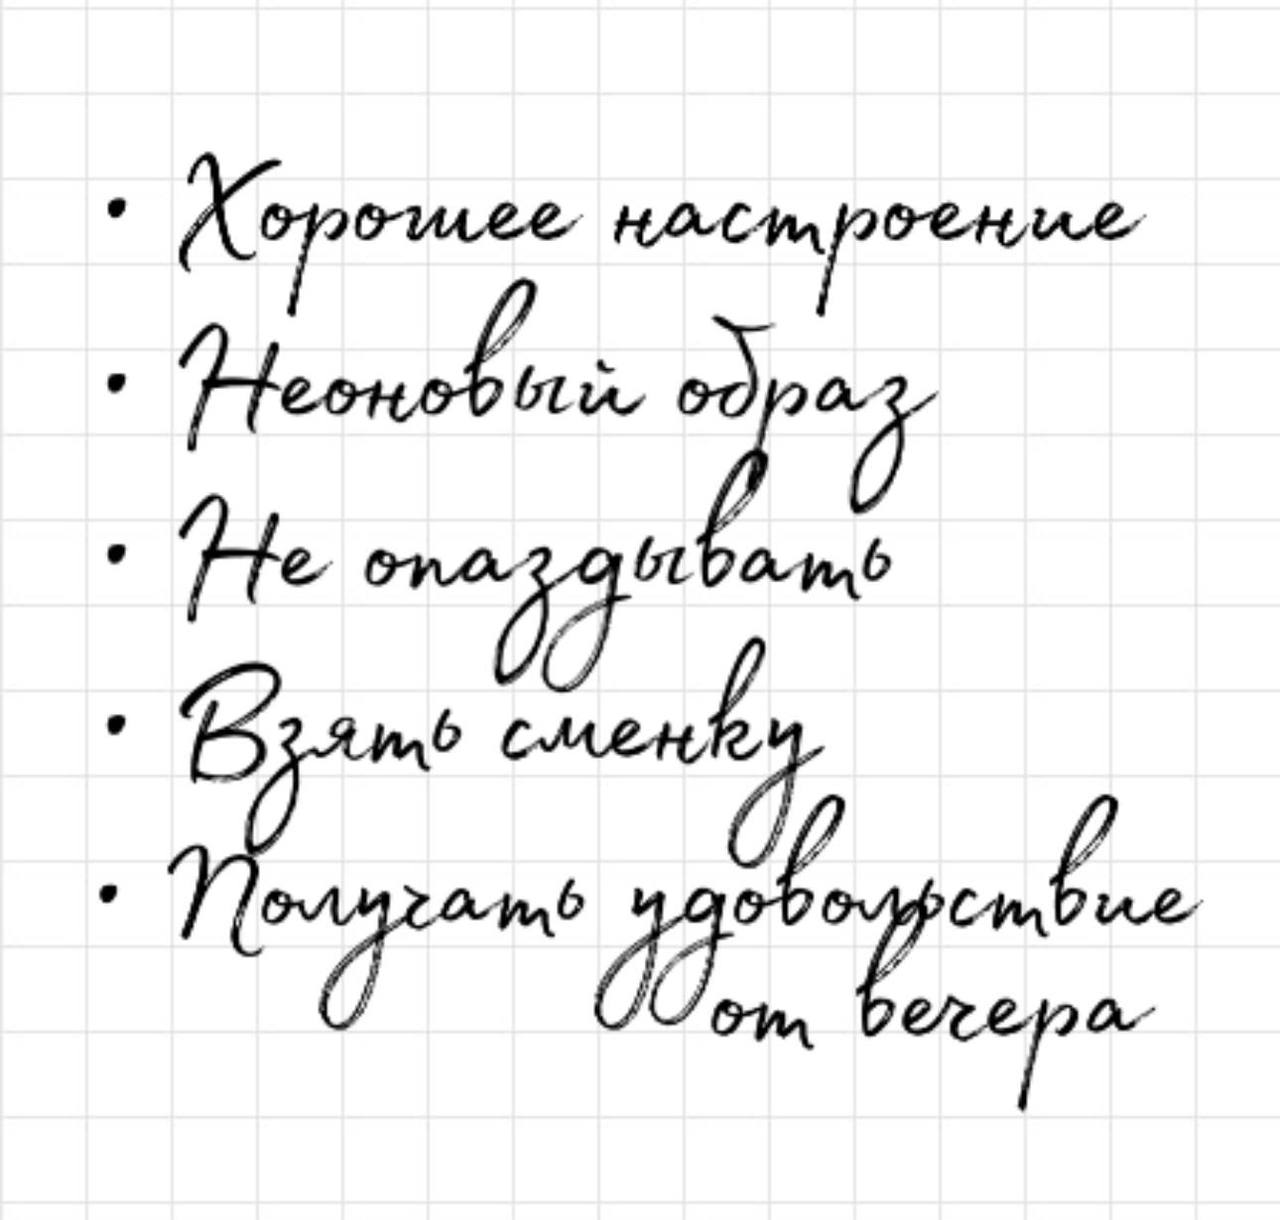 • Хорошее настроение
• Неоновый образ
• Не опаздывать
• Взять сменку
• Получать удовольствие
от вечера